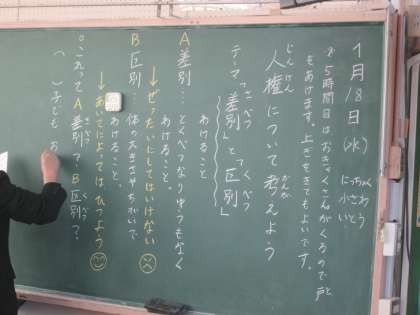 1月18日(水)
にっちょく
小さわ
いとう
※5時間目はおきゃくさんがくるので戸
もあけます。上ぎをきてもよいです。
じんけん
人権について考えよう
かんが
テーマ「差別」と「区別」
さべつ くべつ
わけること
A 差別…とくべつなりゆうもなく
わけること。
↓ぜったいにしてはいけない
B 区別
体の大きさやちがいで
わけること。
↓ばあいによってはひつよう
○これってA差別?B区別?
さべつ くべつ
( )子ども お